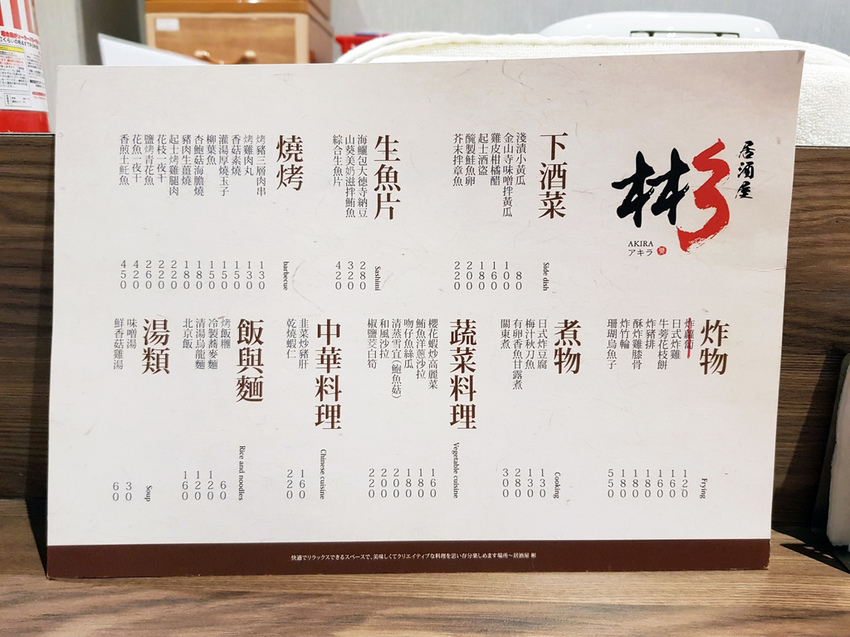 居酒屋
彬
AKIRA
アキラ
下酒菜
Side dish
淺漬小黃瓜 80
金山寺味噌拌黃瓜 100
雞皮柑橘醋 160
起士酒盜 180
醃製鮭魚卵 200
芥末拌章魚 220
生魚片
Sashimi
海鱺包大德寺納豆 280
山葵美奶滋拌鮪魚 320
綜合生魚片 420
燒烤
barbecue
烤豬三層肉串 130
烤雞肉丸 130
香菇素燒 150
灌湯厚燒玉子 150
柳葉魚 150
杏鮑菇海膽燒 180
豬肉生薑燒 180
起士烤雞腿肉 220
花枝一夜干 220
鹽烤青花魚 260
花魚一夜干 420
香煎土魠魚 450
炸物
Frying
炸蘿蔔 120
日式炸雞 160
牛蒡花枝餅 160
炸豬排 180
酥炸雞膝骨 180
炸竹輪 180
珊瑚烏魚子 550
煮物
Cooking
日式炸豆腐 130
梅汁秋刀魚 130
有卵香魚甘露煮 280
關東煮 300
蔬菜料理
Vegetable cuisine
櫻花蝦炒高麗菜 160
鮪魚洋蔥沙拉 180
吻仔魚絲瓜 180
清蒸雪宜(鮑魚菇) 200
和風沙拉 200
椒鹽茭白筍 220
中華料理
Chinese cuisine
韭菜炒豬肝 160
乾燒蝦仁 220
飯與麵
Rice and noodles
烤飯糰 60
冷製蕎麥麵 120
清湯烏龍麵 120
北京飯 160
湯類
Soup
味噌湯 30
鮮香菇雞湯 60
快適でリラックスできるスペースで、美味しくてクリエイティブな料理を思い存分楽しめます場所～居酒屋 彬